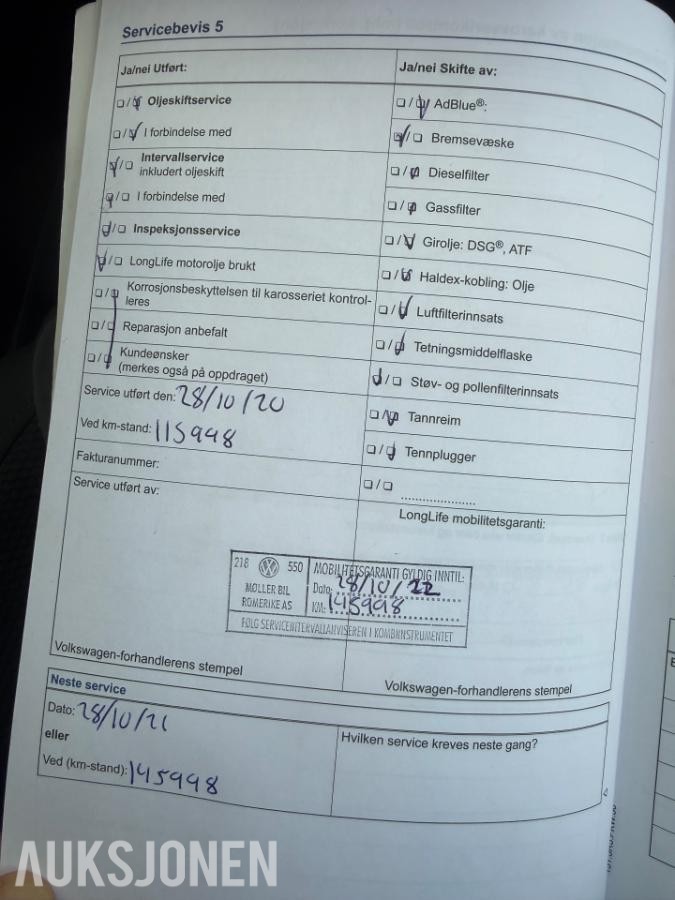 Servicebevis 5
Ja/nei Utført:
☐/☑ Oljeskiftservice
☐/☑ I forbindelse med
☑/☐ Intervallservice
inkludert oljeskift
☑/☐ I forbindelse med
☑/☐ Inspeksjonsservice
☑/☐ LongLife motorolje brukt
☐/☑ Korrosjonsbeskyttelsen til karosseriet kontrol-
leres
☐/☑ Reparasjon anbefalt
☐/☑ Kundeønsker
(merkes også på oppdraget)
Service utført den: 28/10/20
Ved km-stand: 115998
Fakturanummer:
Service utført av:
Ja/nei Skifte av:
☐/☑ AdBlue®:
☑/☐ Bremsevæske
☐/☑ Dieselfilter
☐/☑ Gassfilter
☐/☑ Girolje: DSG®, ATF
☐/☑ Haldex-kobling: Olje
☐/☑ Luftfilterinnsats
☐/☑ Tetningsmiddelflaske
☑/☐ Støv- og pollenfilterinnsats
☐/☑ Tannreim
☐/☑ Tennplugger
☐/☐ ......................
LongLife mobilitetsgaranti:
218 550
MØLLER BIL
ROMERIKE AS
MOBILITETSGARANTI GYLDIG INNTIL:
Dato: 28/10/22
KM: 145998
FØLG SERVICEINTERVALLANVISEREN I KOMBIINSTRUMENTET
Volkswagen-forhandlerens stempel
Volkswagen-forhandlerens stempel
Neste service
Dato: 28/10/21
eller
Ved (km-stand): 145998
Hvilken service kreves neste gang?
AUKSJONEN